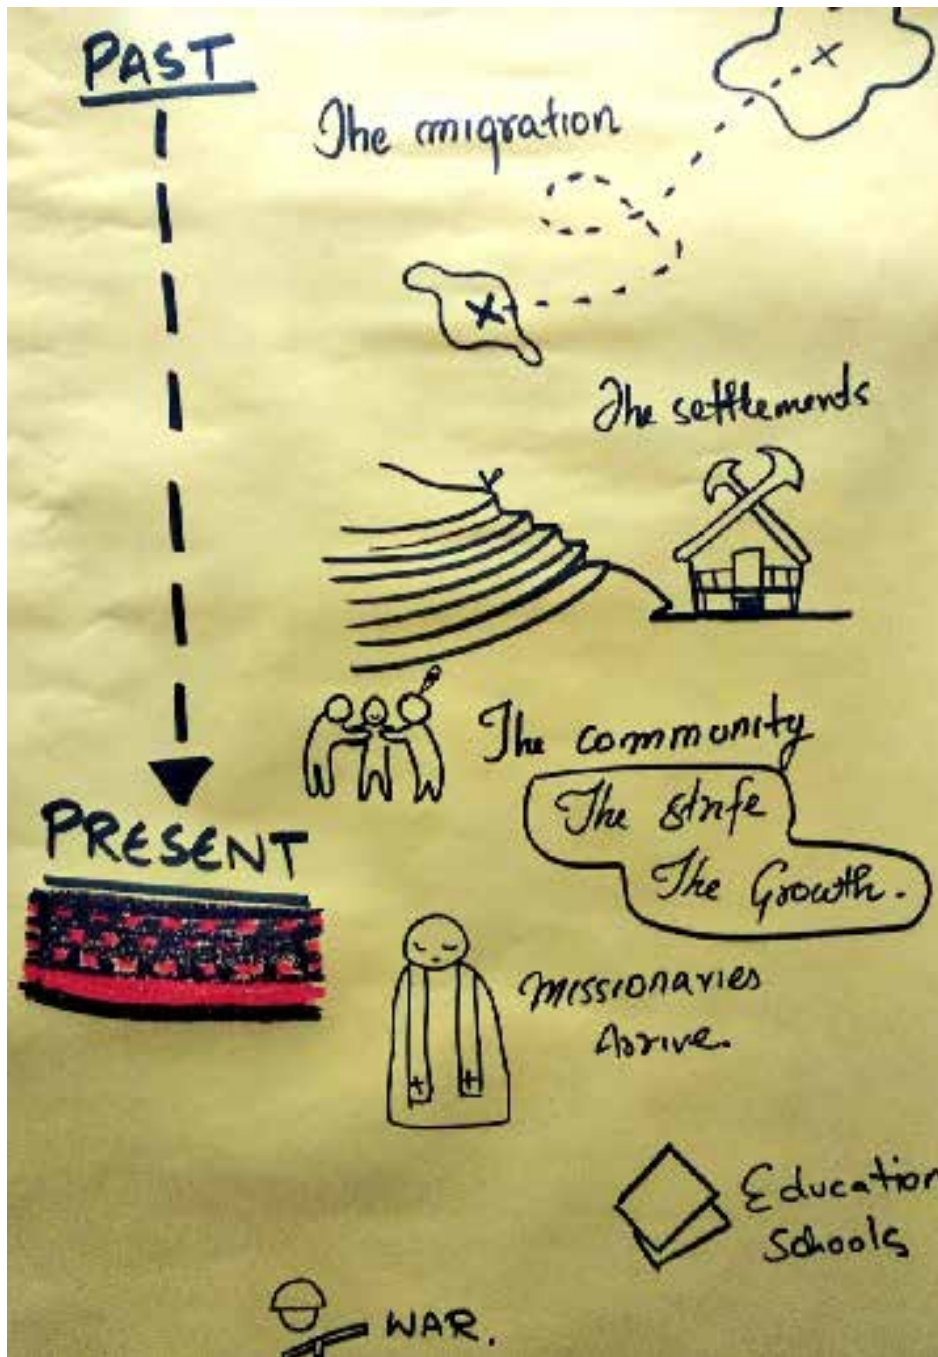 PAST
The migration
The settlements
The community
The strife
The Growth.
PRESENT
MISSIONARIES
Arrive.
Education
Schools
WAR.